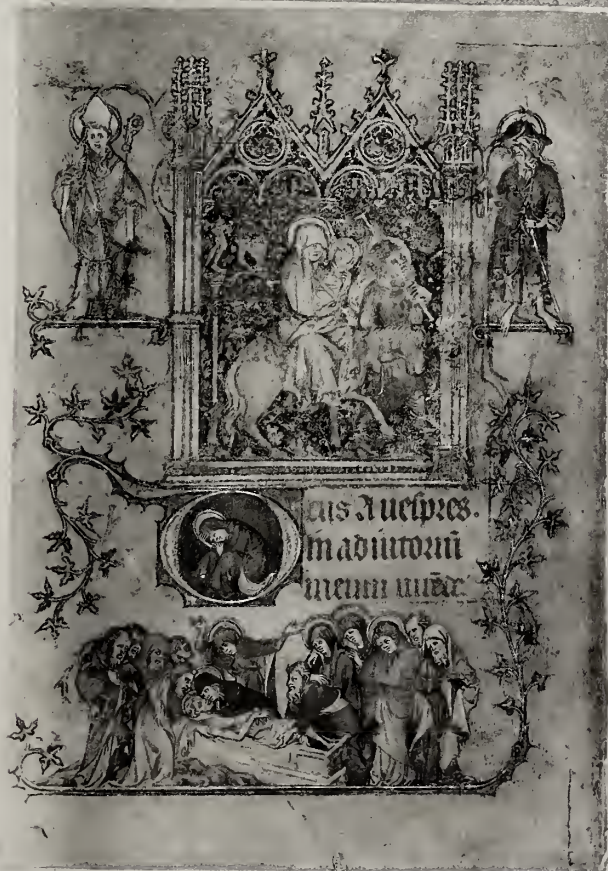 Deus A uespres.
in adiutoriū
meum intēde